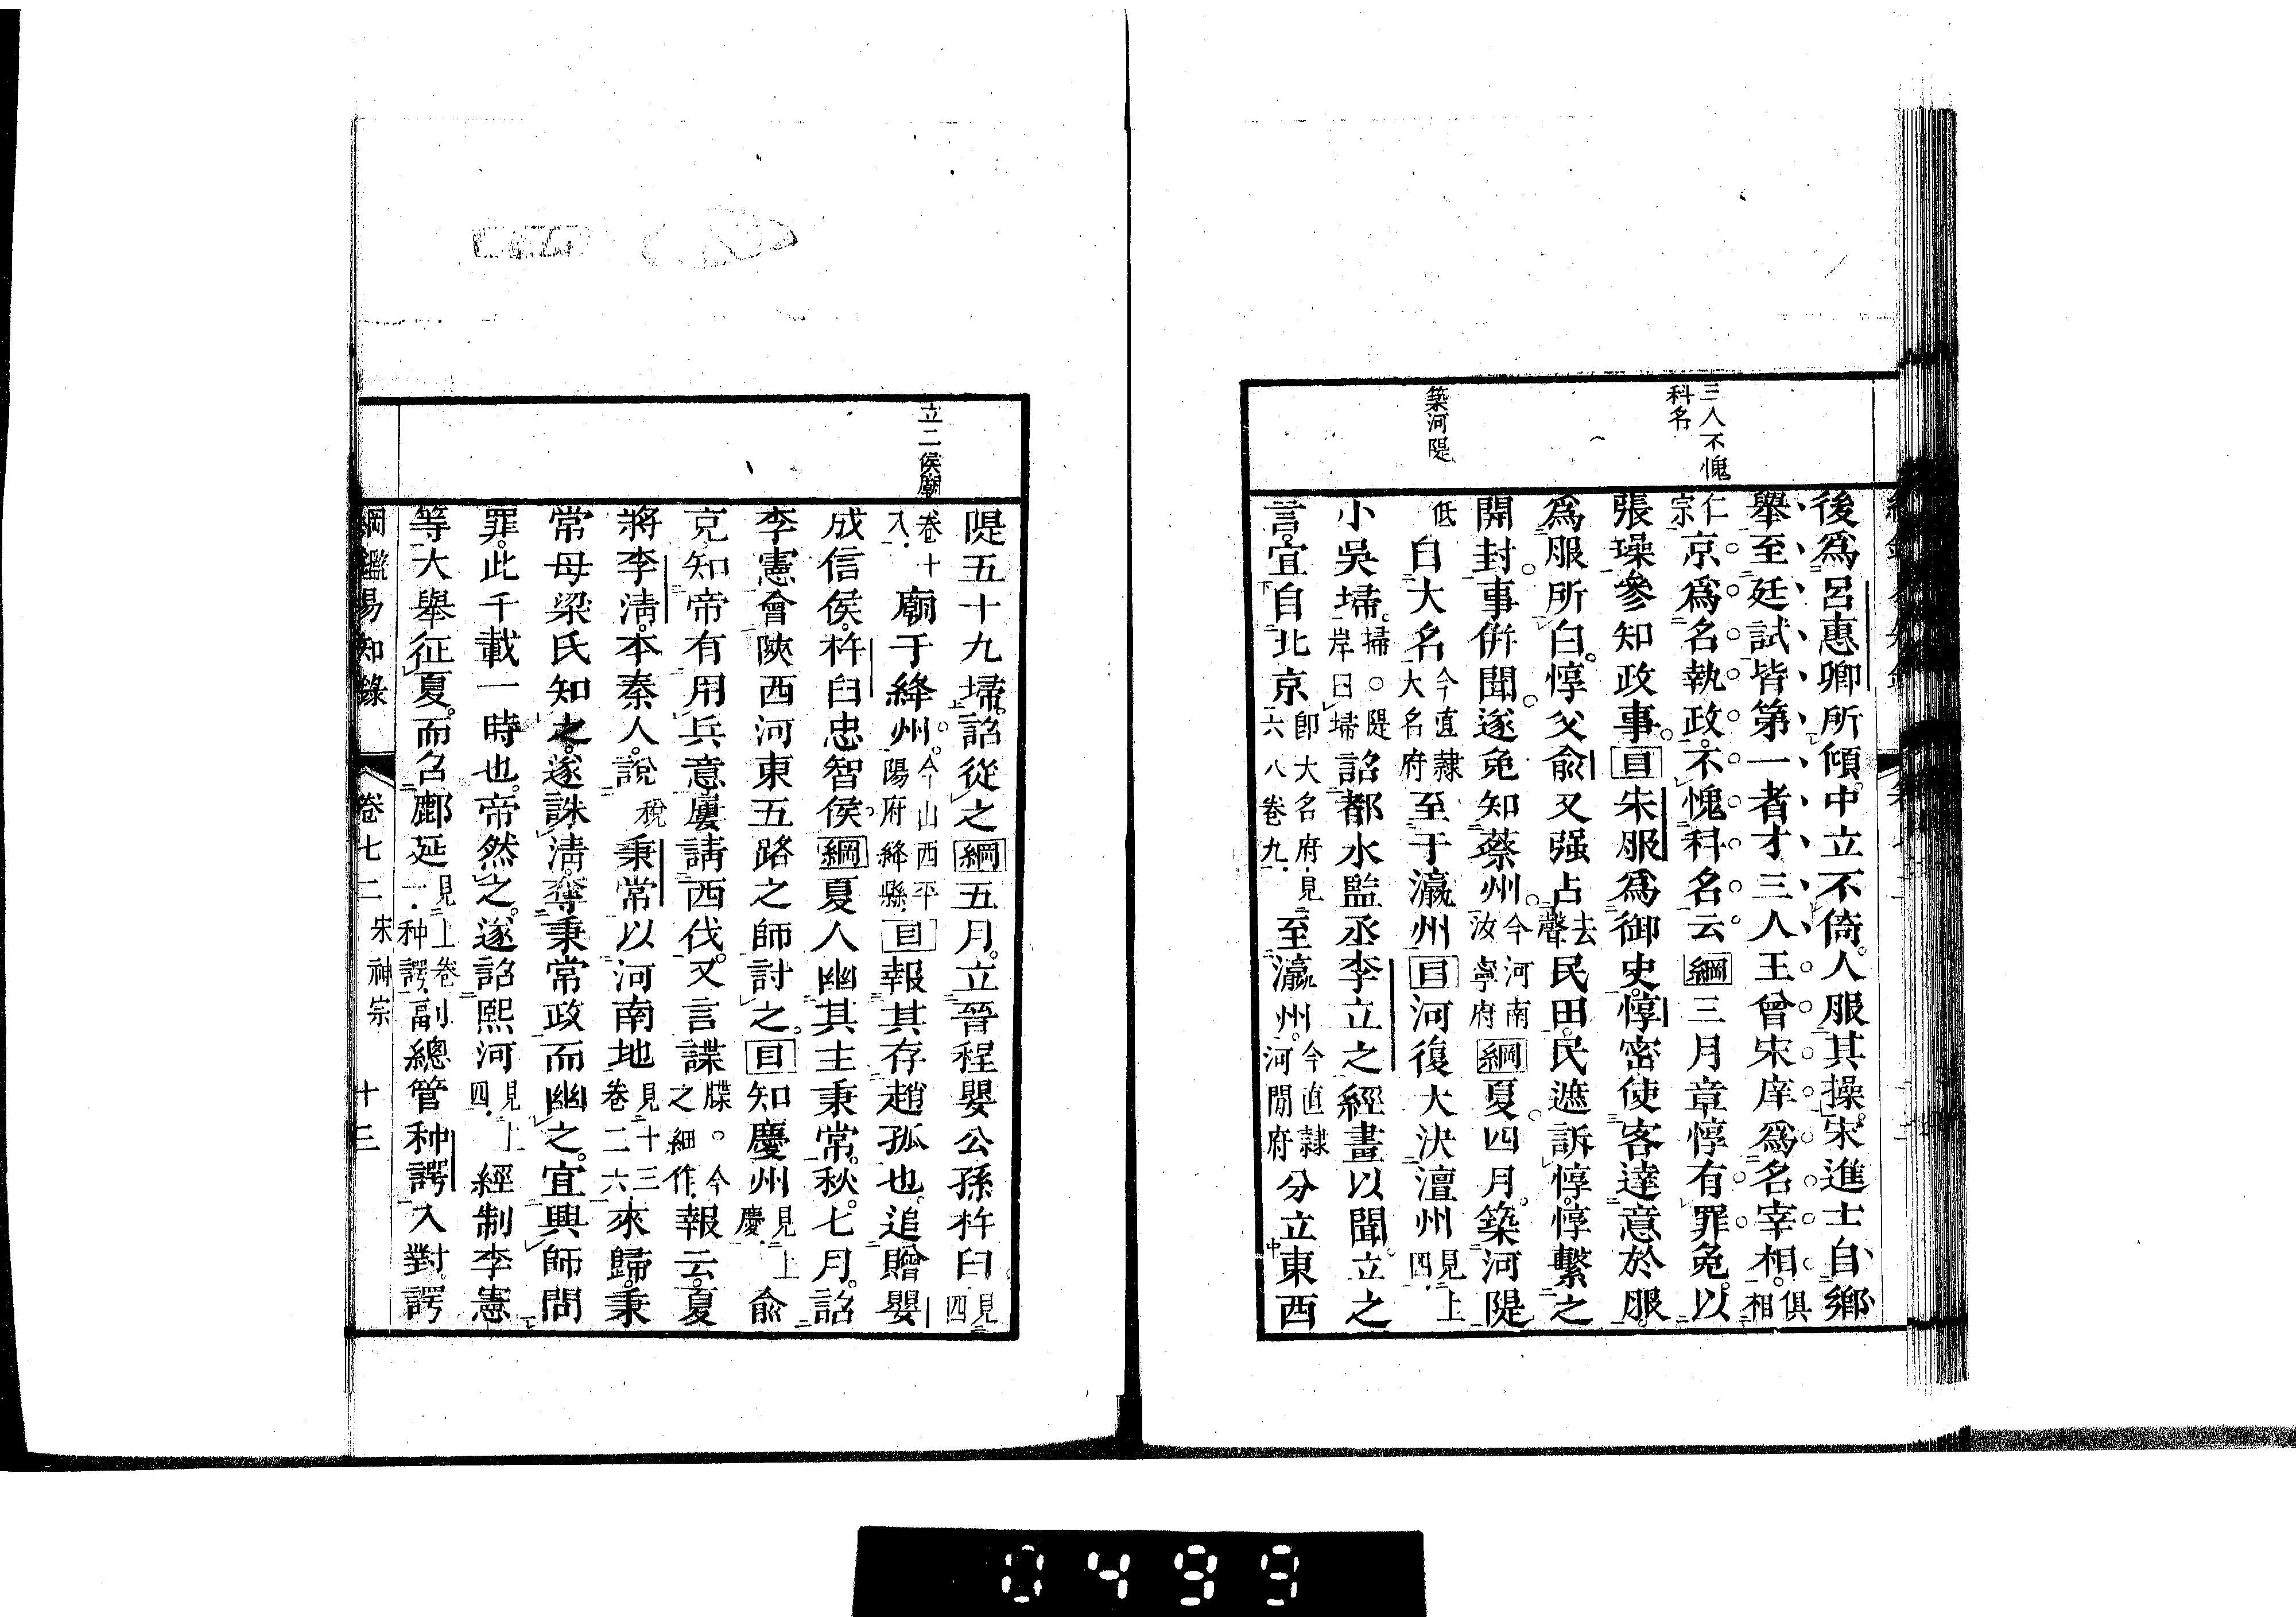 三人不愧
科名
築河隄
後爲呂惠卿所傾中立不倚人服其操宋進士自鄉
舉至廷試皆第一者才三人王曾宋庠爲名宰相俱相
仁宗京爲名執政不愧科名云綱三月章惇有罪免以
張璪參知政事目朱服爲御史惇密使客達意於服
爲服所白惇父俞又强占去聲民田民遮訴惇惇繫之
開封事併聞遂免知蔡州今河南汝寧府綱夏四月築河隄
低自大名今直隷大名府至于瀛州目河復大決澶州見上四
小吳埽掃○隄岸曰埽詔都水監丞李立之經畫以聞立之
言宜自北京卽大名府見六八卷九至瀛州今直隷河間府分立東西
立二侯廟
隄五十九埽詔從之綱五月立晉程嬰公孫杵臼見四
卷十入廟于絳州今山西平陽府絳縣目報其存趙孤也追贈嬰
成信侯杵臼忠智侯綱夏人幽其主秉常秋七月詔
李憲會陝西河東五路之師討之目知慶州見上慶俞
充知帝有用兵意屢請西伐又言諜牒○今之細作報云夏
將李淸本秦人說稅秉常以河南地見十三卷二六來歸秉
常母梁氏知之遂誅淸奪秉常政而幽之宜興師問
罪此千載一時也帝然之遂詔熙河見上四經制李憲
等大舉征夏而召鄜延見上卷一种諤副總管种諤入對諤
綱鑑易知錄 卷七二 宋神宗 十三
0499